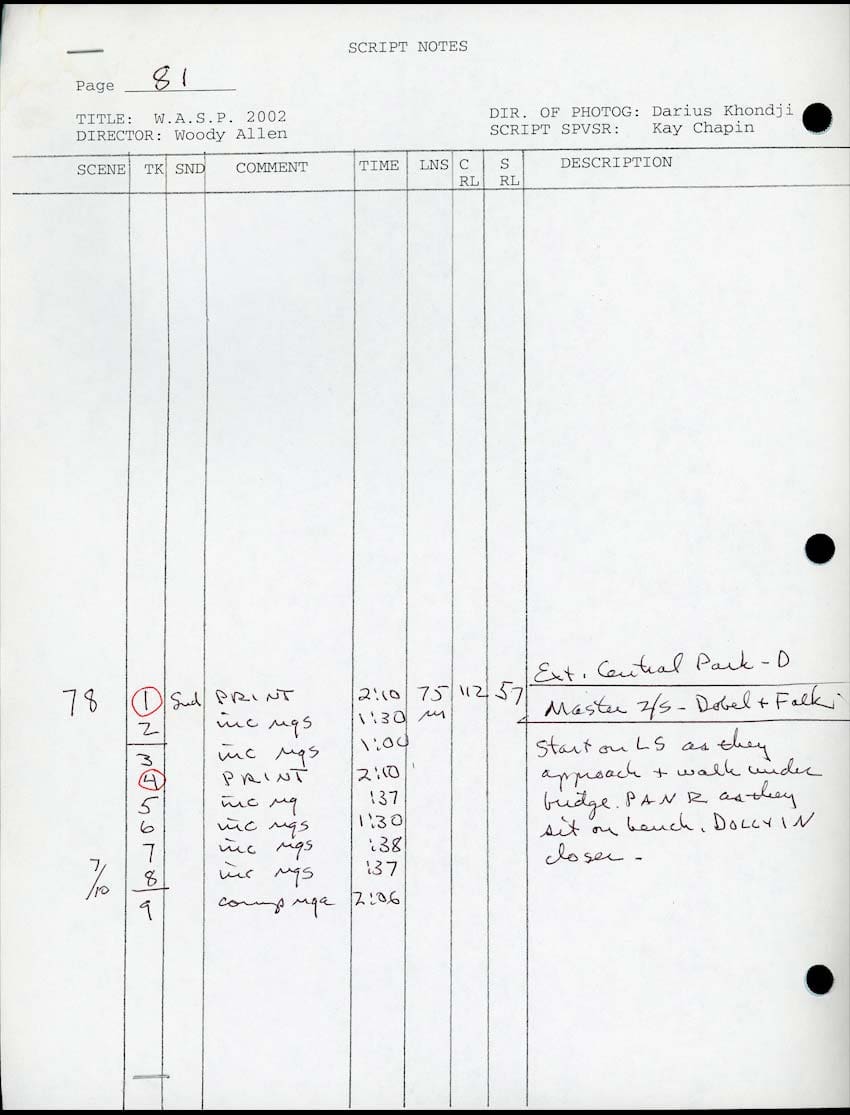 SCRIPT NOTES
Page 81
TITLE: W.A.S.P. 2002
DIR. OF PHOTOG: Darius Khondji
DIRECTOR: Woody Allen
SCRIPT SPVSR: Kay Chapin
SCENE TK SND COMMENT TIME LNS C RL S RL DESCRIPTION
Ext. Central Park - D
78 1 Snd PRINT 2:10 75 112 57
Master 2/S - Dobel + Falk
2 inc ngs 1:30
3 inc ngs 1:00
Start on LS as they
4 PRINT 2:10
approach + walk under
5 inc ng :37
bridge. PAN R as they
6 inc ngs 1:30
sit on bench. DOLLY IN
7 inc ngs :38
closer -
7/10 8 inc ngs :37
9 comp 2:06